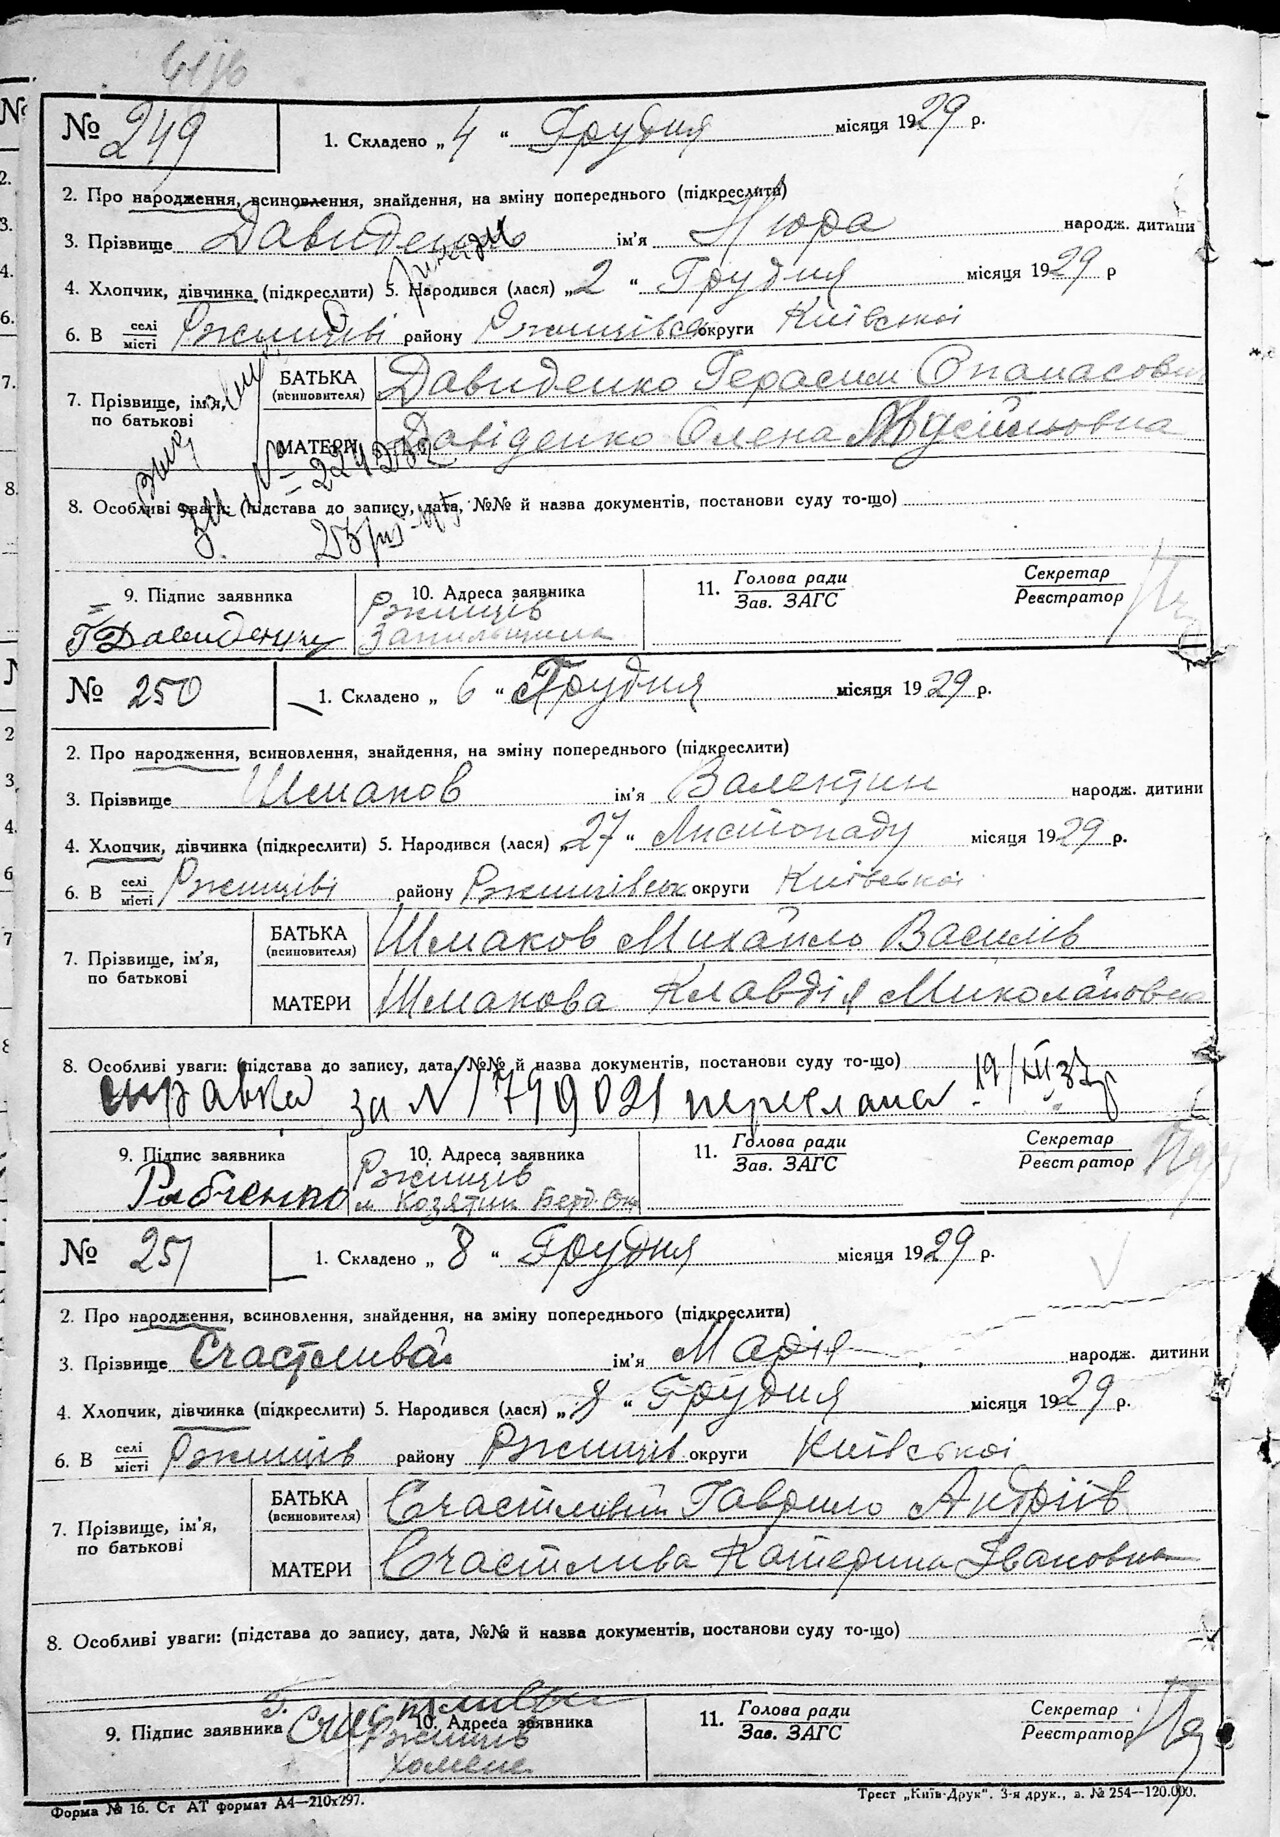 № 249
1. Складено „ 4 “ Грудня місяця 1929 р.
2. Про народження, всиновлення, знайдення, на зміну попереднього (підкреслити)
3. Прізвище Давиденко ім'я Нюра народж. дитини
4. Хлопчик, дівчинка (підкреслити) 5. Народився (лася) „ 2 “ Грудня місяця 1929 р
6. В селі місті Ржищеві району Ржищівськ округи Київської
7. Прізвище, ім'я, по батькові
БАТЬКА (всиновителя) Давиденко Герасим Опанасович
МАТЕРИ Давіденко Олена
8. Особливі уваги: (підстава до запису, дата, №№ й назва документів, постанови суду то-що)
9. Підпис заявника
Г Давиденко
10. Адреса заявника
Ржищів
11. Голова ради
Зав. ЗАГС
Секретар
Реєстратор
№ 250
1. Складено „ 6 “ Грудня місяця 1929 р.
2. Про народження, всиновлення, знайдення, на зміну попереднього (підкреслити)
3. Прізвище Шмаков ім'я Валентин народж. дитини
4. Хлопчик, дівчинка (підкреслити) 5. Народився (лася) „ 27 “ Листопаду місяця 1929 р.
6. В селі місті Ржищіві району Ржищівськ округи Київської
7. Прізвище, ім'я, по батькові
БАТЬКА (всиновителя) Шмаков Михайло Василів
МАТЕРИ Шмакова Клавдія Миколаївна
8. Особливі уваги: (підстава до запису, дата, №№ й назва документів, постанови суду то-що)
справка за № 1749021 переслана 19/XII 37р
9. Підпис заявника
Рабченко
10. Адреса заявника
Ржищів
м Козятин Берд. Окр
11. Голова ради
Зав. ЗАГС
Секретар
Реєстратор
№ 251
1. Складено „ 8 “ Грудня місяця 1929 р.
2. Про народження, всиновлення, знайдення, на зміну попереднього (підкреслити)
3. Прізвище Счастлива ім'я Марія народж. дитини
4. Хлопчик, дівчинка (підкреслити) 5. Народився (лася) „ 8 “ Грудня місяця 1929 р.
6. В селі місті Ржищів району Ржищів округи Київської
7. Прізвище, ім'я, по батькові
БАТЬКА (всиновителя) Счастливий Гаврило Андріїв
МАТЕРИ Счастлива Катерина Івановна
8. Особливі уваги: (підстава до запису, дата, №№ й назва документів, постанови суду то-що)
9. Підпис заявника
Г. Счастливы
10. Адреса заявника
Ржищів
11. Голова ради
Зав. ЗАГС
Секретар
Реєстратор
Форма № 16. Ст АТ формат А4—210х297.
Трест „Київ-Друк“. 3-я друк., з. № 254—120.000.